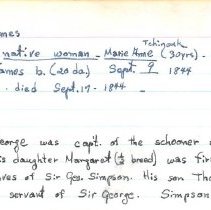 ames
Tchinouk
native woman - Marie Anne (30 yrs) -
ames b. (20 da.) Sept. 9 1844
. died Sept. 17 - 1844 .
eorge was capt. of the schooner
is daughter Margaret (½ breed) was fir
ves of Sir Geo. Simpson. His son Tho
servant of Sir George. Simpson